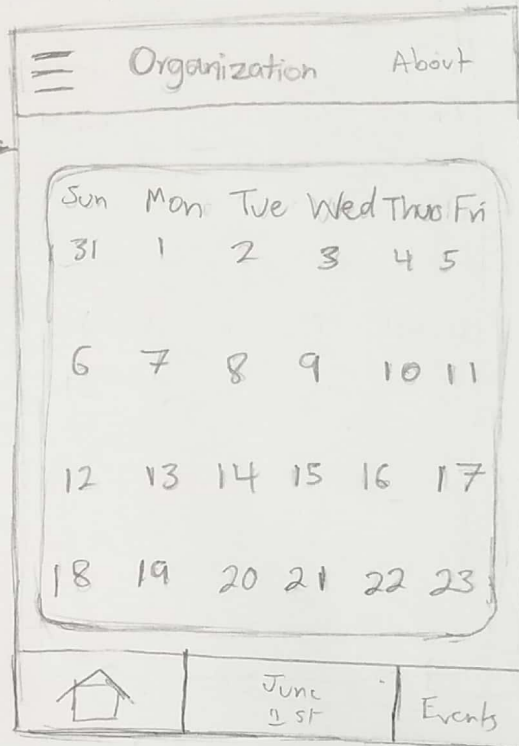 Organization About
Sun Mon Tue Wed Thur Fri
31 1 2 3 4 5
6 7 8 9 10 11
12 13 14 15 16 17
18 19 20 21 22 23
June
1st
Events